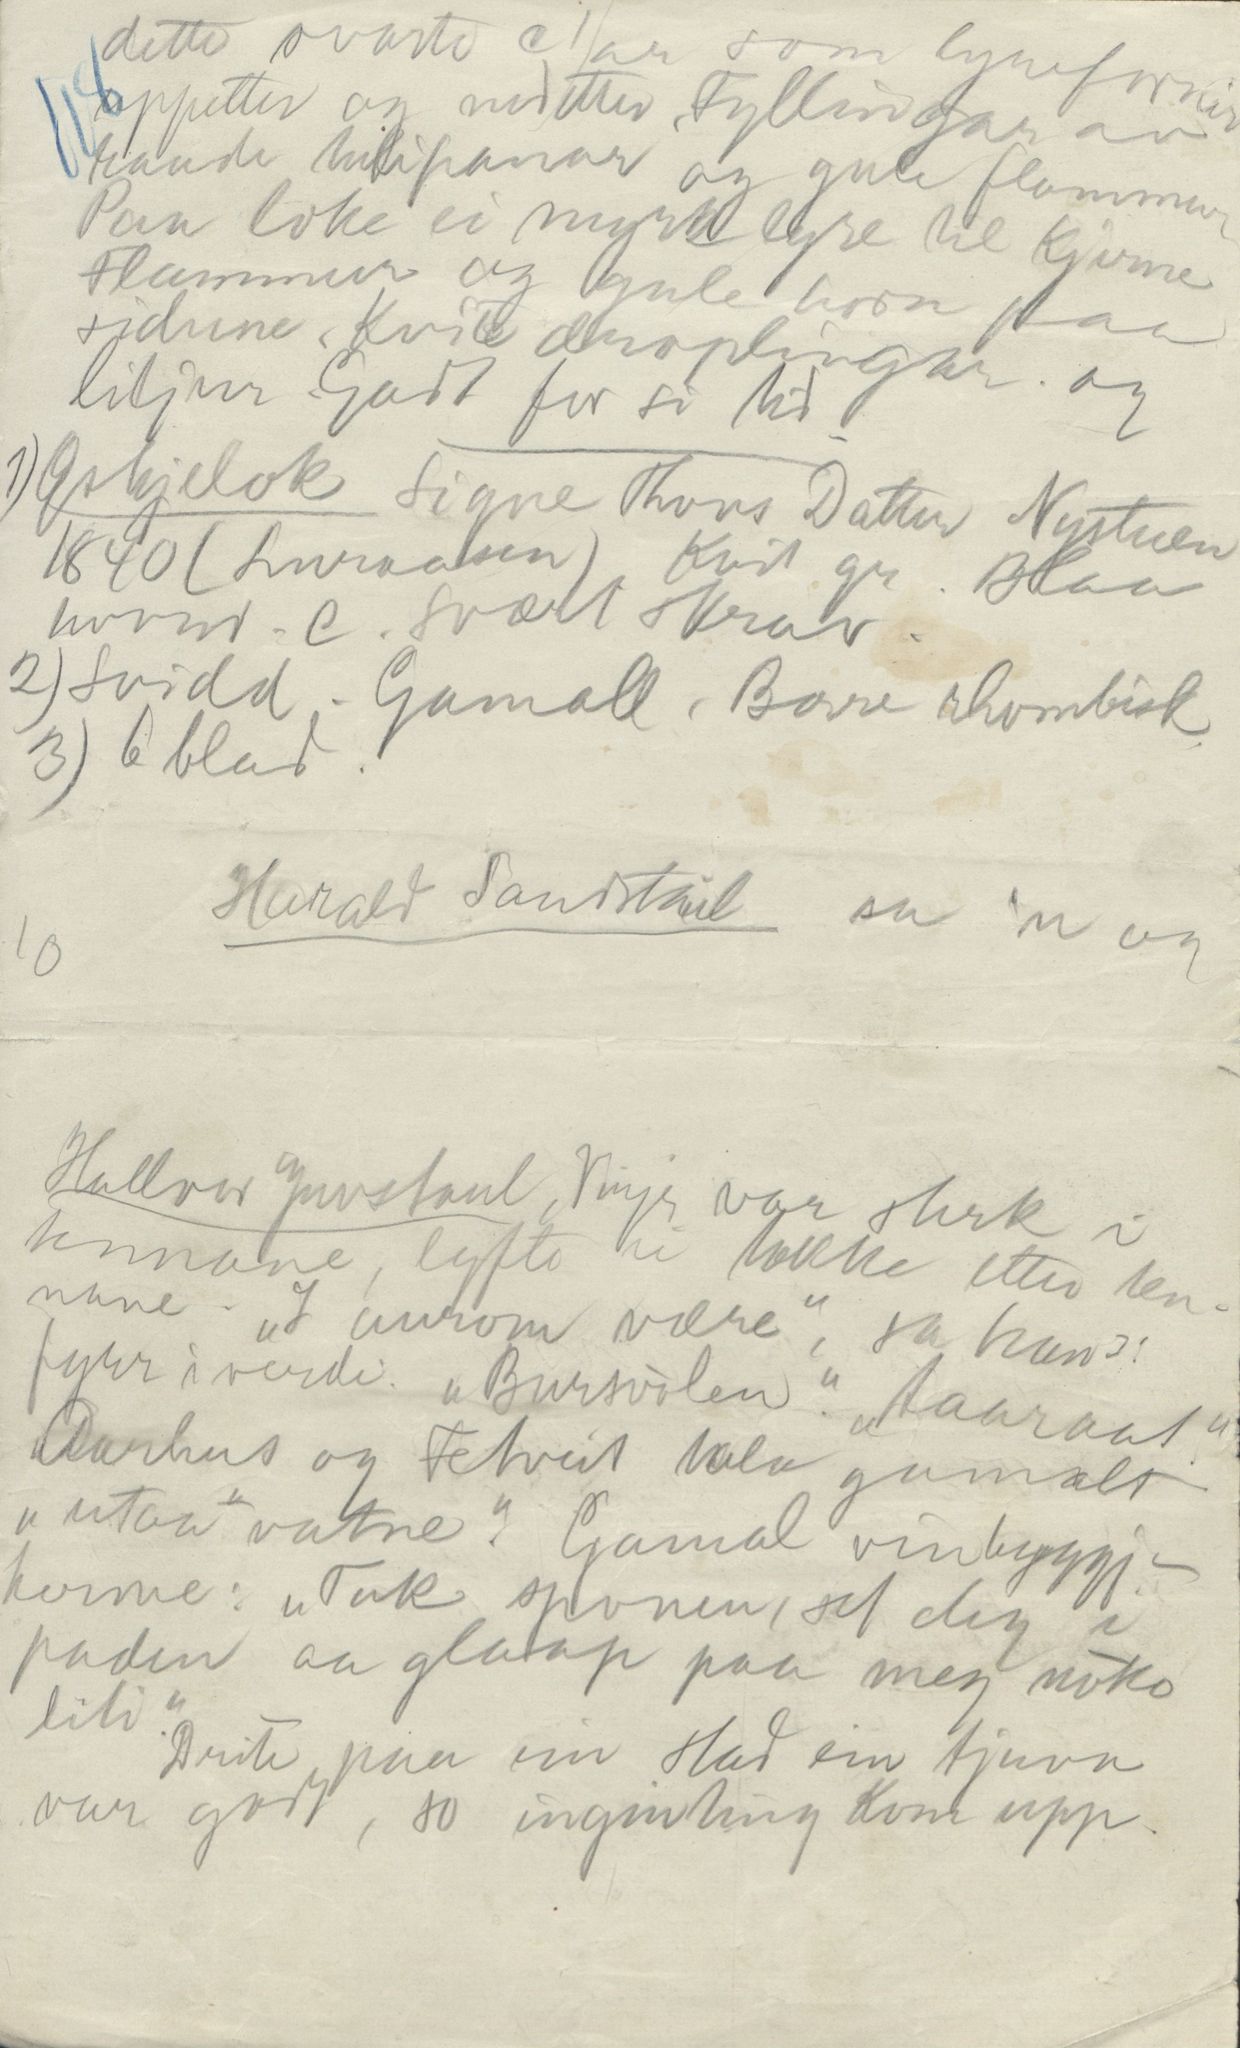 dette svarte C'ar som lyneformir
118
uppetter og nedetter. Fyllingar av
raude tulipanar og gule flammur
Paa loke ei myrk lyre til kjerne
Flammur og gule horn paa
sidune. Kvite kroplingar og
liljur. Godt for si tid.
1) Øskjelok Signe Thors Datter Nystuen
1840 (Luraasen) Kvit gr. Blaa
C. Svært skrav.
2) Svidd. Gamall. Borre rhombisk
3) 6 blad.
Harald Sandstaul sa 'n og
10
Hallvor Juvstaul, Vinje var sterk i
tennane, lyfte ei tekke etter ten-
nane. "I aurom være", sa han:
fyrr i verdi. "Bursvolen". "Aaaraat"
Aarhus og Fetveit tala gamalt
"utaa" vatne". Gamal vinbyggj-
korine: "Tak sponen, set deg i
paden aa glaap paa meg noko
liti".
Drite paa ein stad ein tjuva
var godt, so ingenting kom upp.